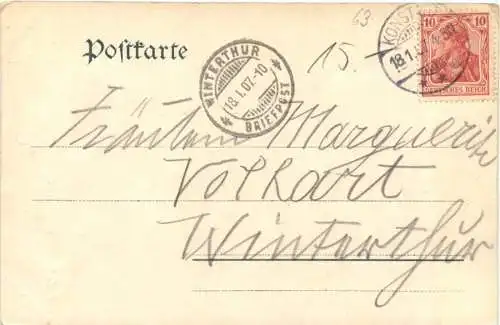 63
Postkarte
15.-
WINTERTHUR
18.I.07.-10
BRIEFPOST
KONSTANZ
18.1.
10 10
DEUTSCHES REICH
Fräulein Marguerite
Volkart
Winterthur